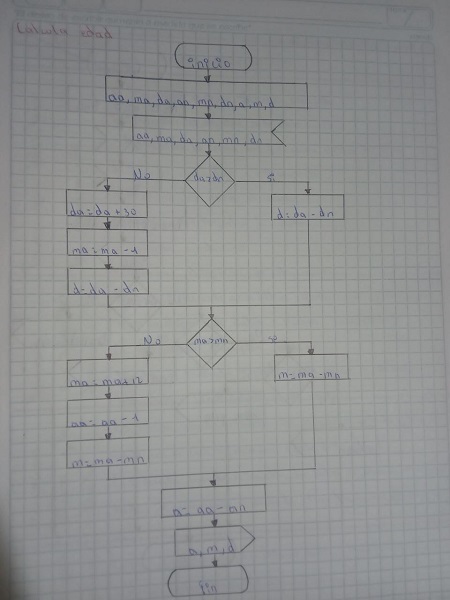 Calcula edad
inicio
aa, ma, da, an, mn, dn, a, m, d
aa, ma, da, an, mn, dn
da>dn
No
si
da = da + 30
d = da - dn
ma = ma - 1
d = da - dn
ma>mn
No
si
ma = ma + 12
m = ma - mn
aa = aa - 1
m = ma - mn
a = aa - mn
a, m, d
fin